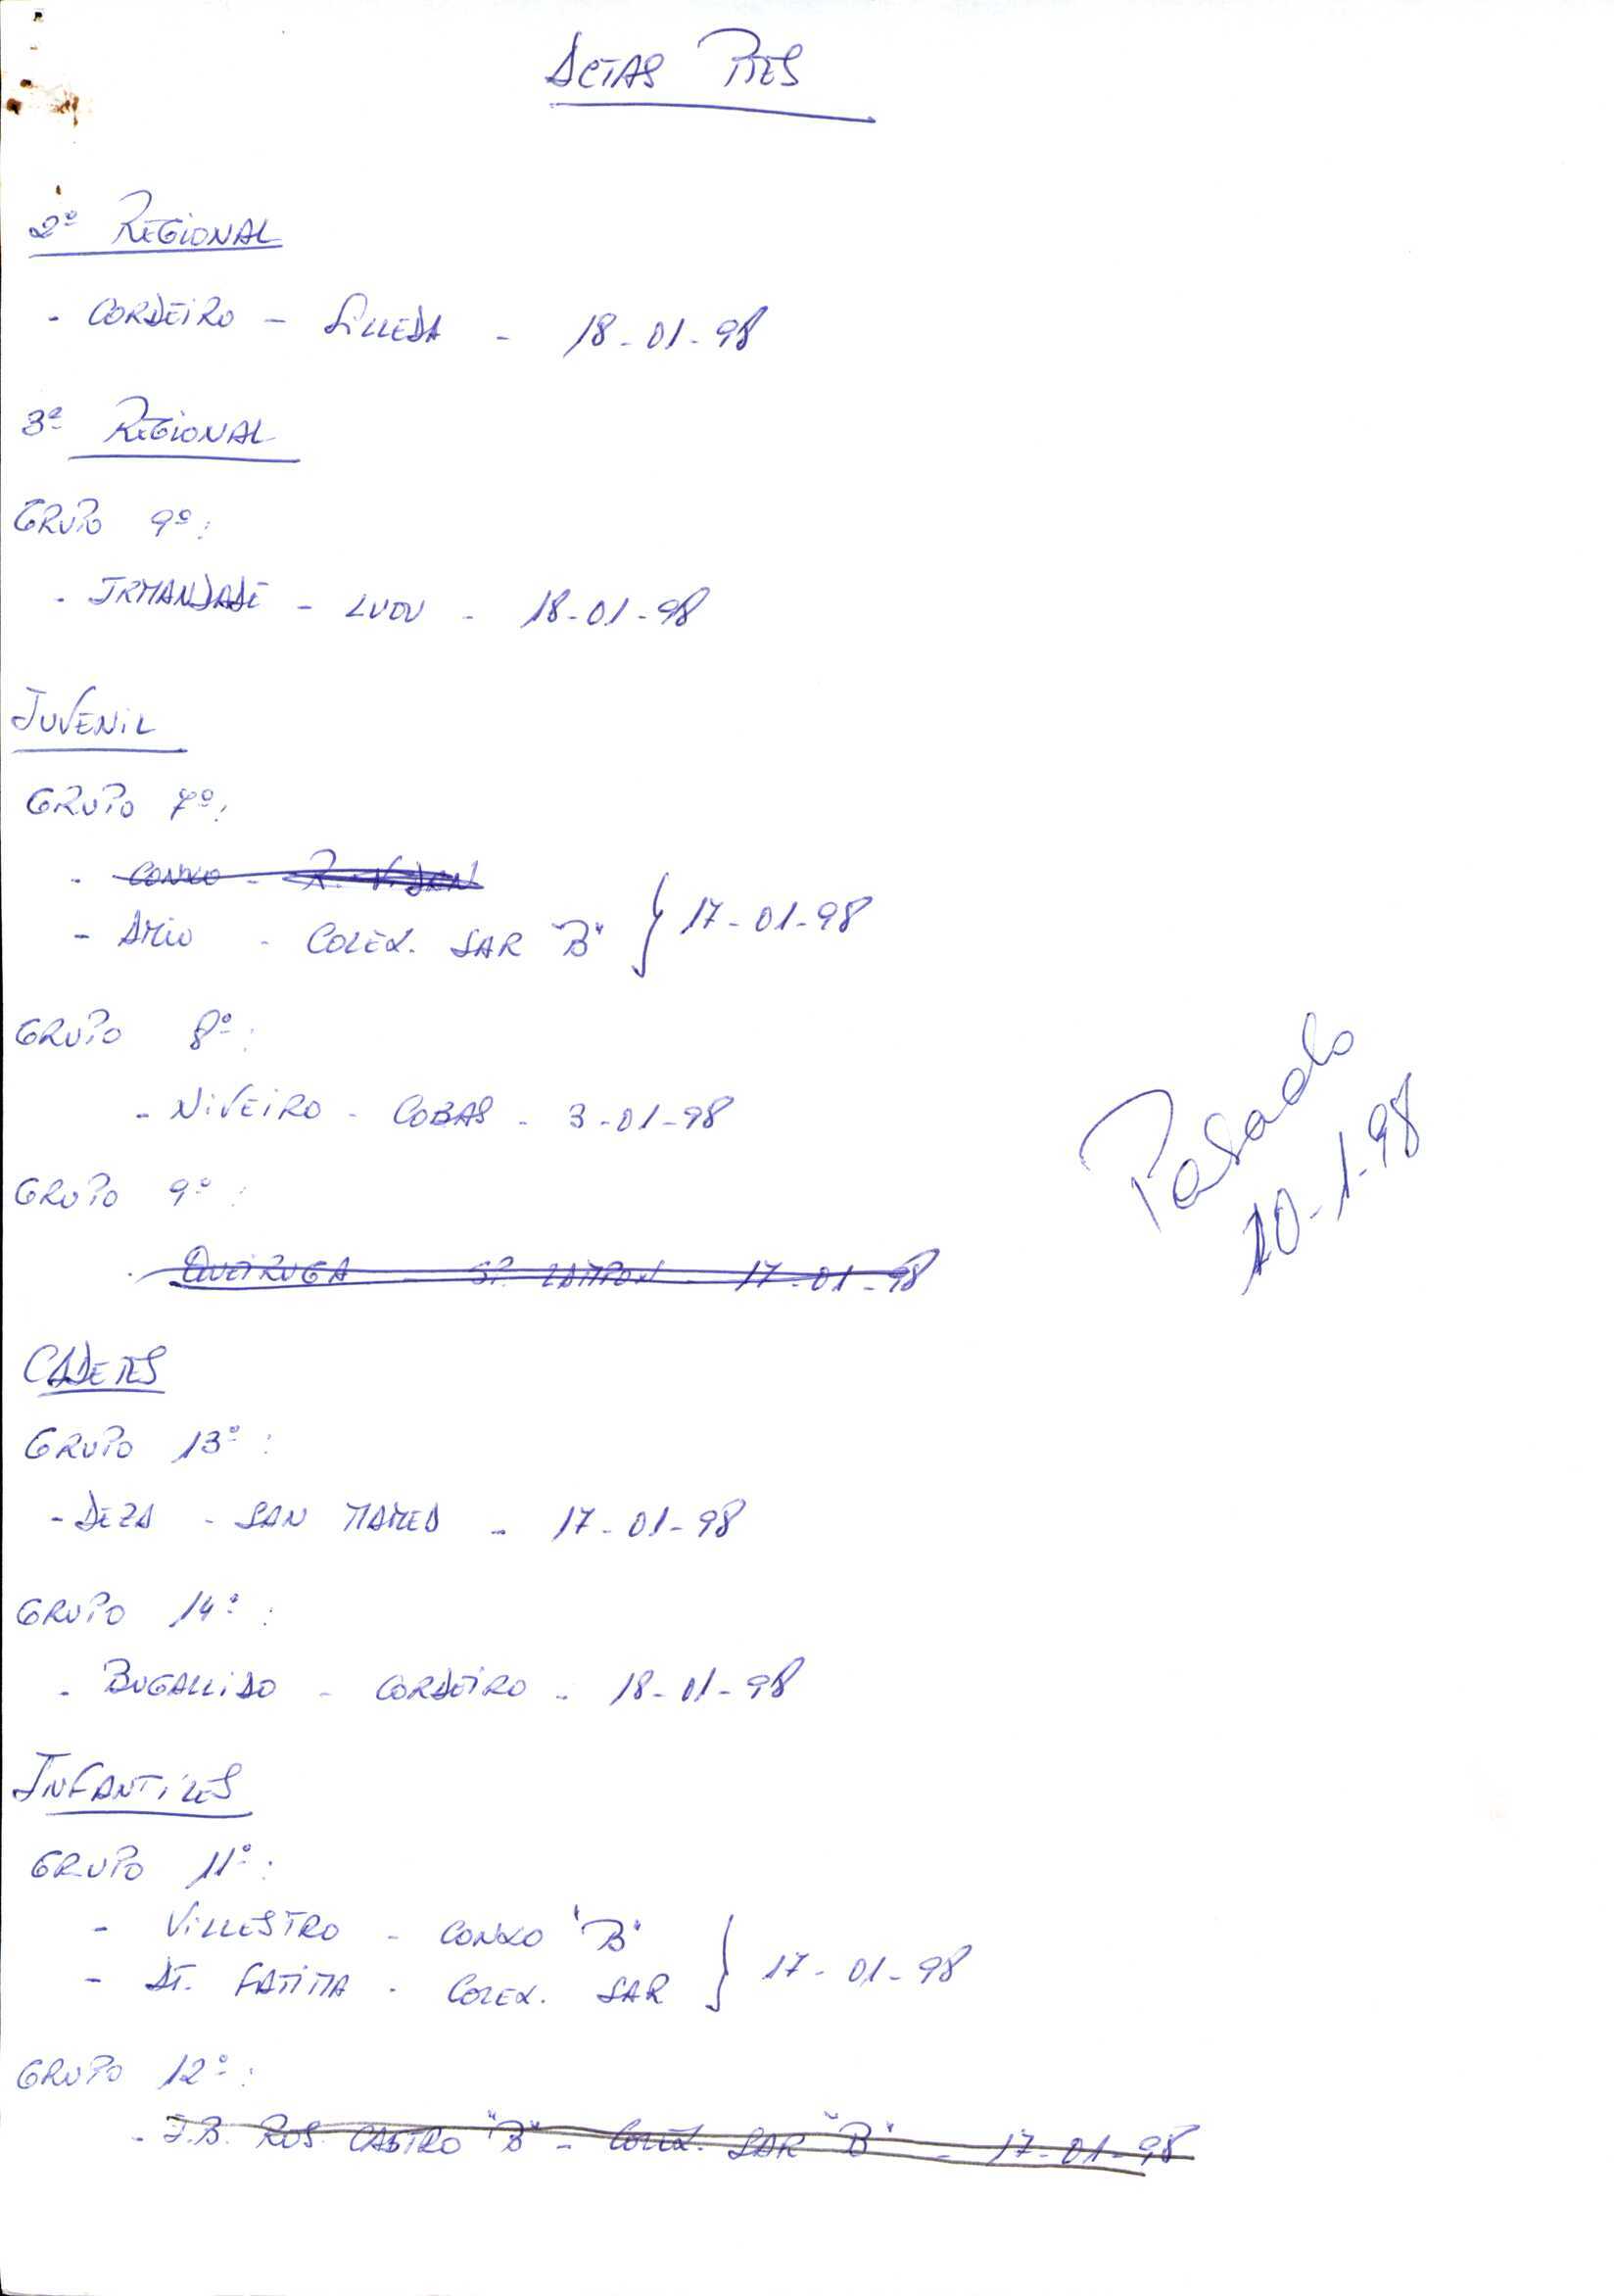 ACTAS PTES
2º REGIONAL
- CORDEIRO - SILLEDA - 18-01-98
3ª REGIONAL
GRUPO 9º:
- IRMANDADE - LUOU - 18-01-98
JUVENIL
GRUPO 7º:
- CONXO - R. VIDAN
- AMIO - COLEX. SAR "B" } 17-01-98
GRUPO 8º:
- NIVEIRO - COBAS - 3-01-98
Pasado
10-1-98
GRUPO 9º:
- QUEIRUGA - SP. LAMPON - 17-01-98
CADETES
GRUPO 13º:
- DEZA - SAN MAMED - 17-01-98
GRUPO 14º:
- BUGALLIDO - CORDEIRO - 18-01-98
INFANTILES
GRUPO 11º:
- VILLESTRO - CONXO "B"
- AT. FATIMA - COLEX. SAR } 17-01-98
GRUPO 12º:
- E.B. ROS. CASTRO "B" - COLEX. SAR "B" - 17-01-98